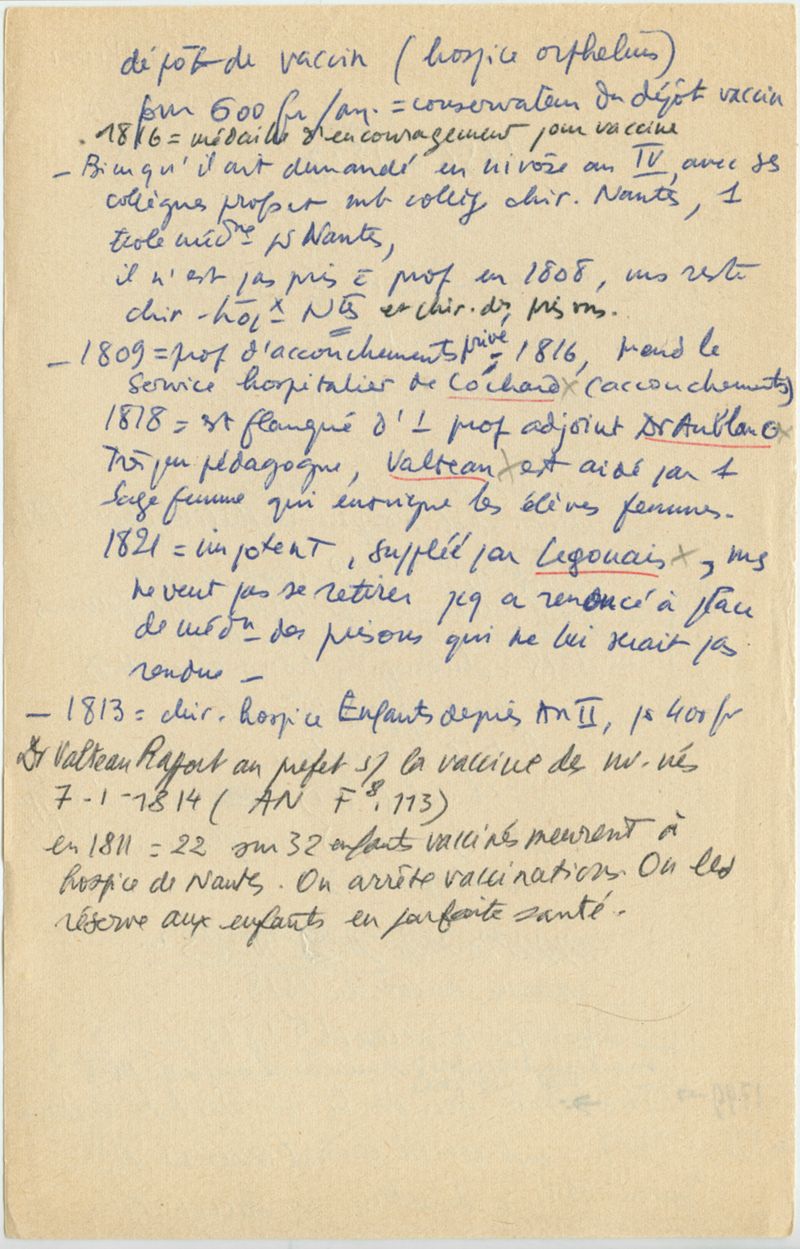 dépôt de vaccin (hospice orphelins)
pour 600 fr/an. = conservateur du dépôt vaccin
. 1816 = médaille d'encouragement pour vaccine
- Bien qu'il ait demandé en nivôse an IV, avec ses
collègues profs et mb collèg chir. Nantes, 1
École médne pr Nantes,
il n'est pas pris = prof en 1808, ms reste
chir - hôpx Ntes et chir. des prisons.
- 1809 = prof d'accouchements privé, 1816, prend le
Service hospitalier de Cochard x (accouchements)
1818 = est flanqué d'1 prof adjoint Dr Aublanc x
Très peu pédagogue, Valteau x est aidé par 1
Sage femme qui enseigne les élèves femmes.
1821 = impotent, suppléé par Legouais x, ms
ne veut pas se retirer pcq a renoncé à place
de médn des prisons qui ne lui serait pas
rendue -
- 1813 = chir. hospice Enfants depuis An II, pr 400 fr
Dr Valteau Rapport au préfet s/ la vaccine des nv. nés
7-1-1814 (AN F8. 113)
en 1811 = 22 sur 32 enfants vaccinés meurent à
hospice de Nantes. On arrête vaccinations. On les
réserve aux enfants en parfaite santé.